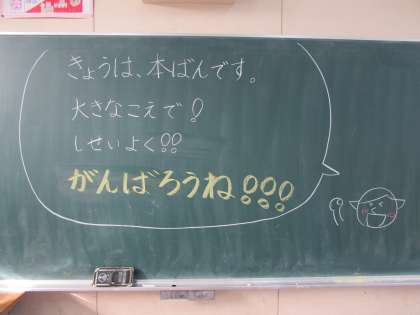 きょうは、本ばんです。
大きなこえで!
しせいよく!!
がんばろうね!!!